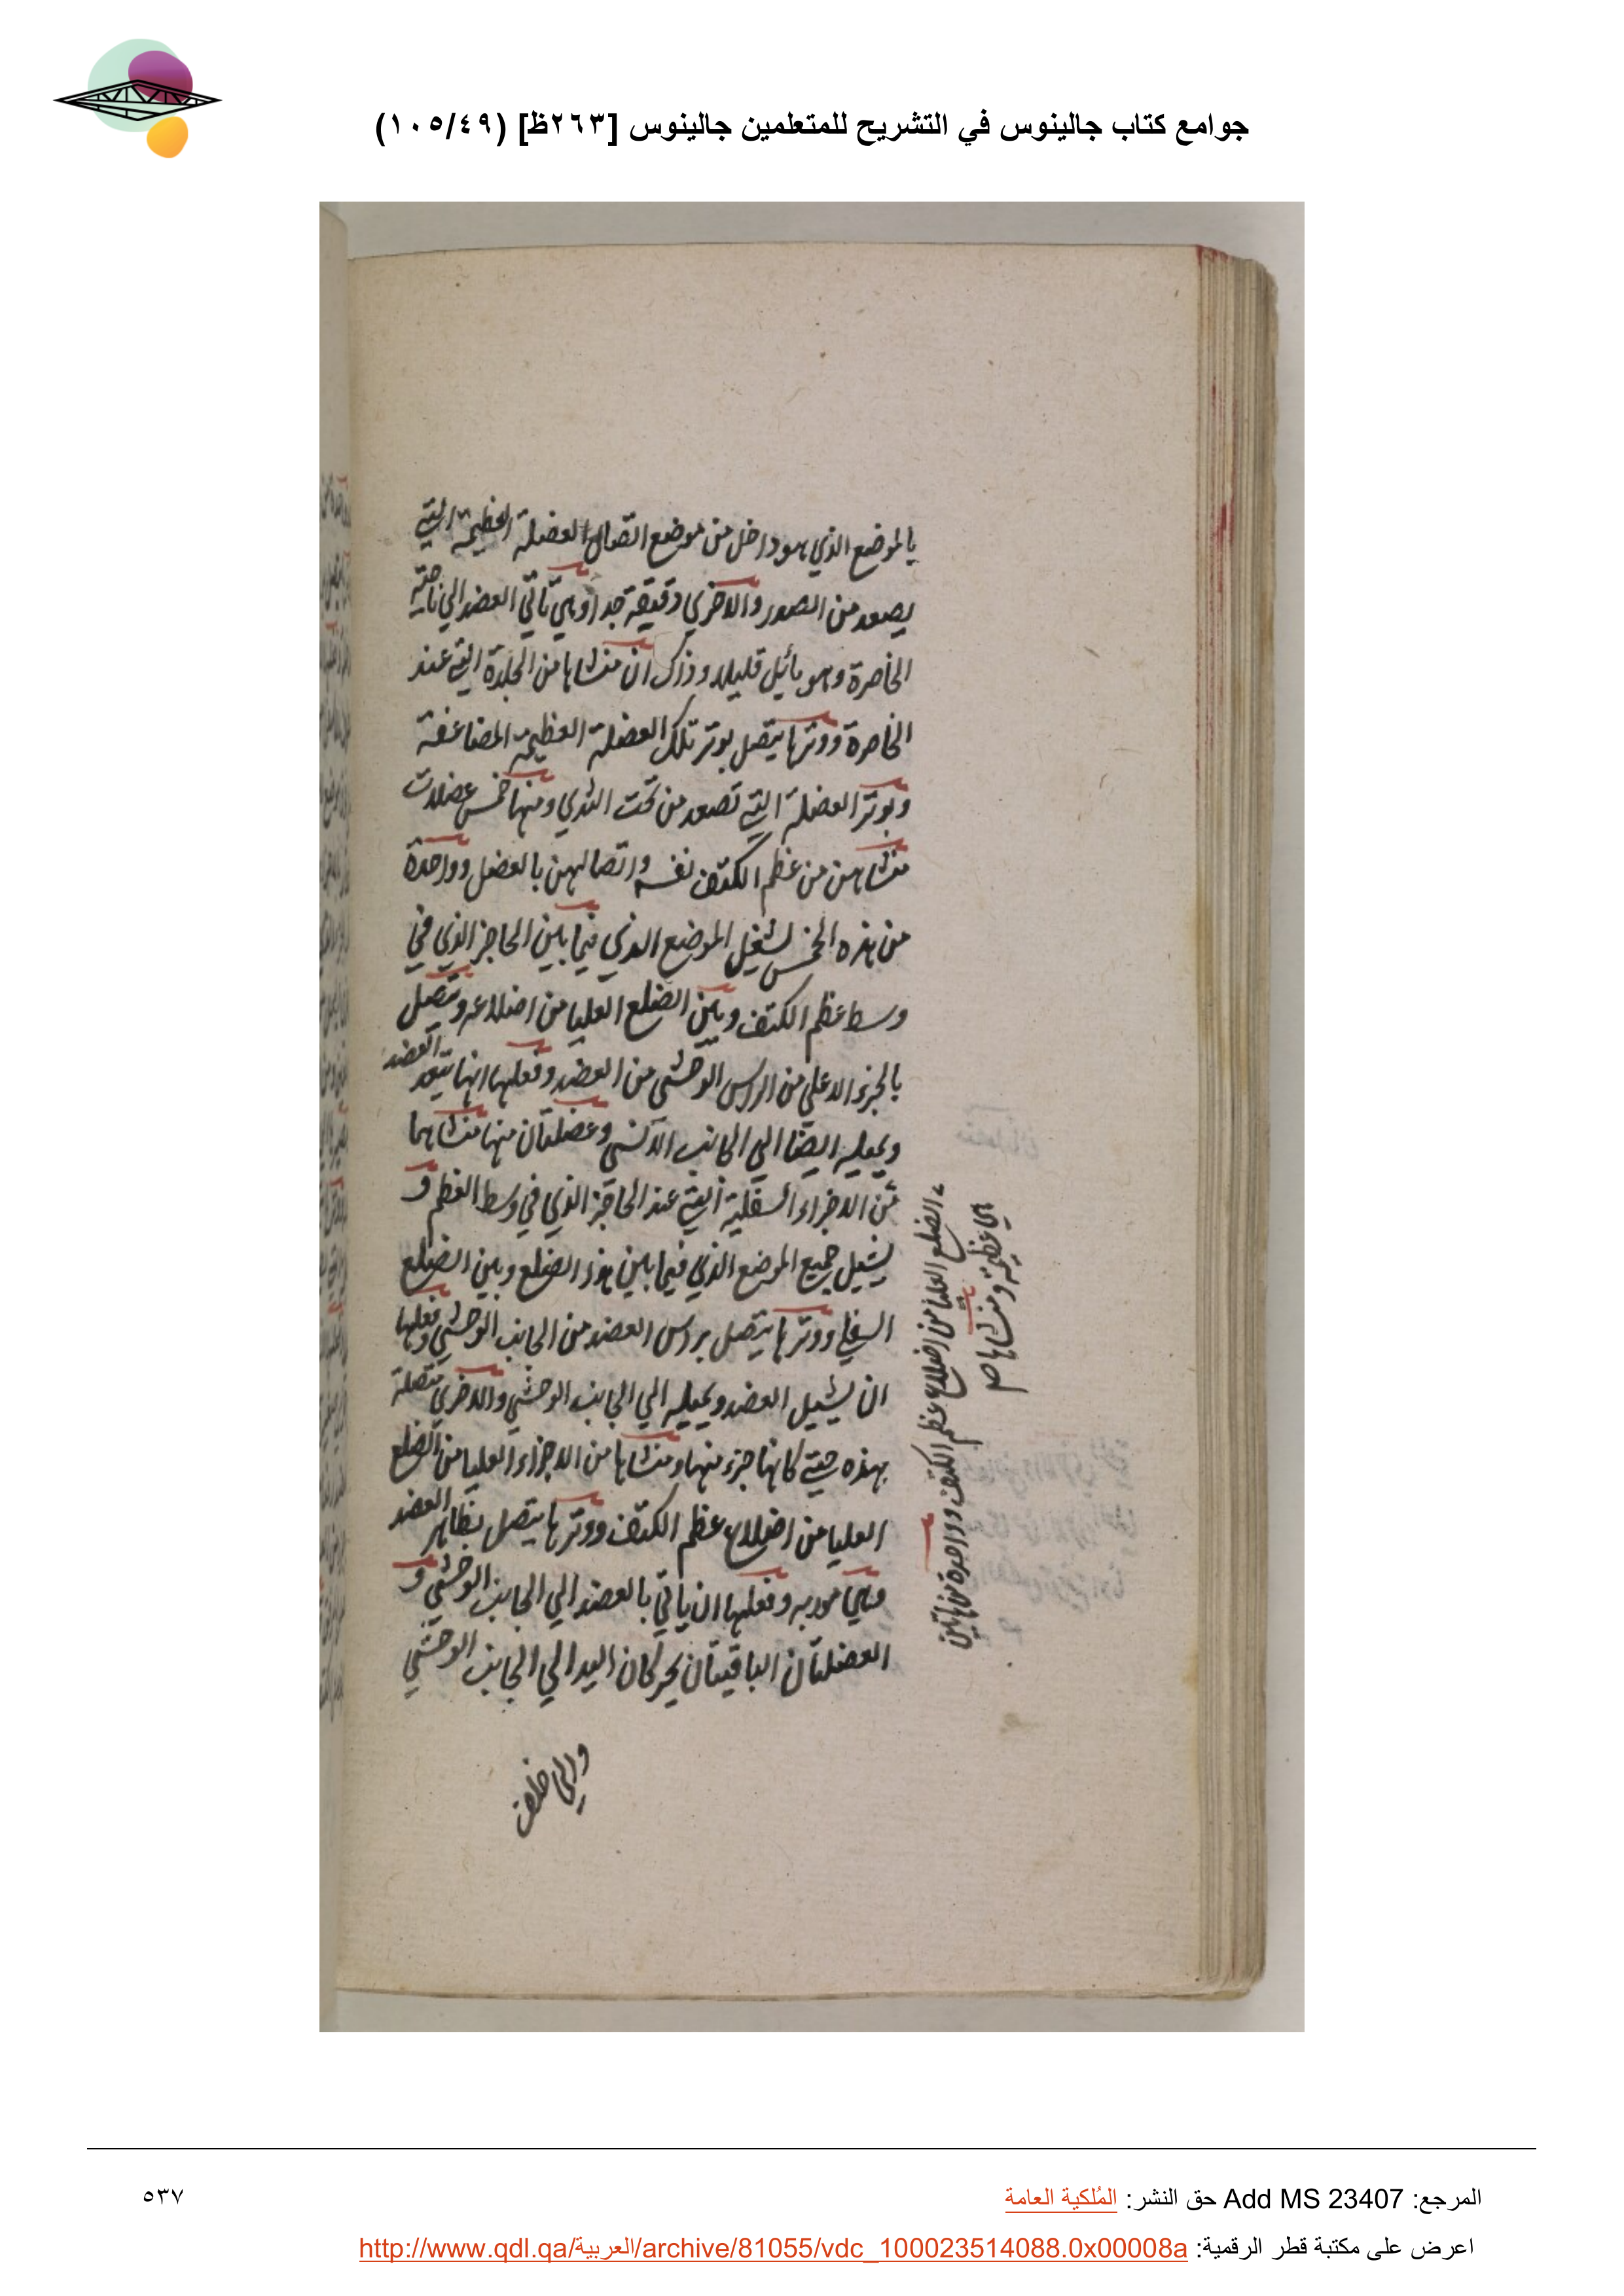 جوامع كتاب جالينوس في التشريح للمتعلمين جالينوس [٢٦٣ظ] (١٠٥/٤٩)
بالموضع الذي هو داخل من موضع اتصال العضلة العظيمة التي
يصعد من الصدر والاخرى دقيقة جدا وهي تأتي العضد الي ناحية
الخاصرة وهو مائل قليلا وذلك ان منشاها من الجلدة التي عند
الخاصرة ووترها يتصل بوتر تلك العضلة العظيمة المضاعفة
وبوتر العضلة التي تصعد من تحت الثدي ومنها خمس عضلات
منشاهن من عظم الكتف نفسه واتصالهن بالعضل وواحدة
من هذه الخمس تشغل الموضع الذي فيما بين الحاجز الذي في
وسط عظم الكتف وبين الضلع العليا من اضلاعه ويتصل
بالجزء الاعلي من الراس الوحشي من العضد وفعلها انها تبعد العضد
ويميله ايضا الي الجانب الانسي وعضلتان منها منشاهما
من الاجزاء السفلية التي عند الحاجز الذي في وسط العظم و
يشيل جميع الموضع الذي فيما بين هذا الضلع وبين الضلع
السفلي ووترها يتصل براس العضد من الجانب الوحشي وفعلها
ان يشيل العضد ويميله الي الجانب الوحشي والاخرى متصلة
بهذه حتي كانها جزء منها ومنشاها من الاجزاء العليا من الضلع
العليا من اضلاع عظم الكتف ووترها يتصل بظاهر العضد
وهي موربه وفعلها ان يأتي بالعضد الي الجانب الوحشي و
العضلتان الباقيتان يحركان اليد الي الجانب الوحشي
والي خلف
الضلع العليا من اضلاع عظم الكتف وواحدة من هاتين
هي عظيمة ومنشاها صح
المرجع: Add MS 23407 حق النشر: المُلكية العامة
٥٣٧
اعرض على مكتبة قطر الرقمية: http://www.qdl.qa/العربية/archive/81055/vdc_100023514088.0x00008a